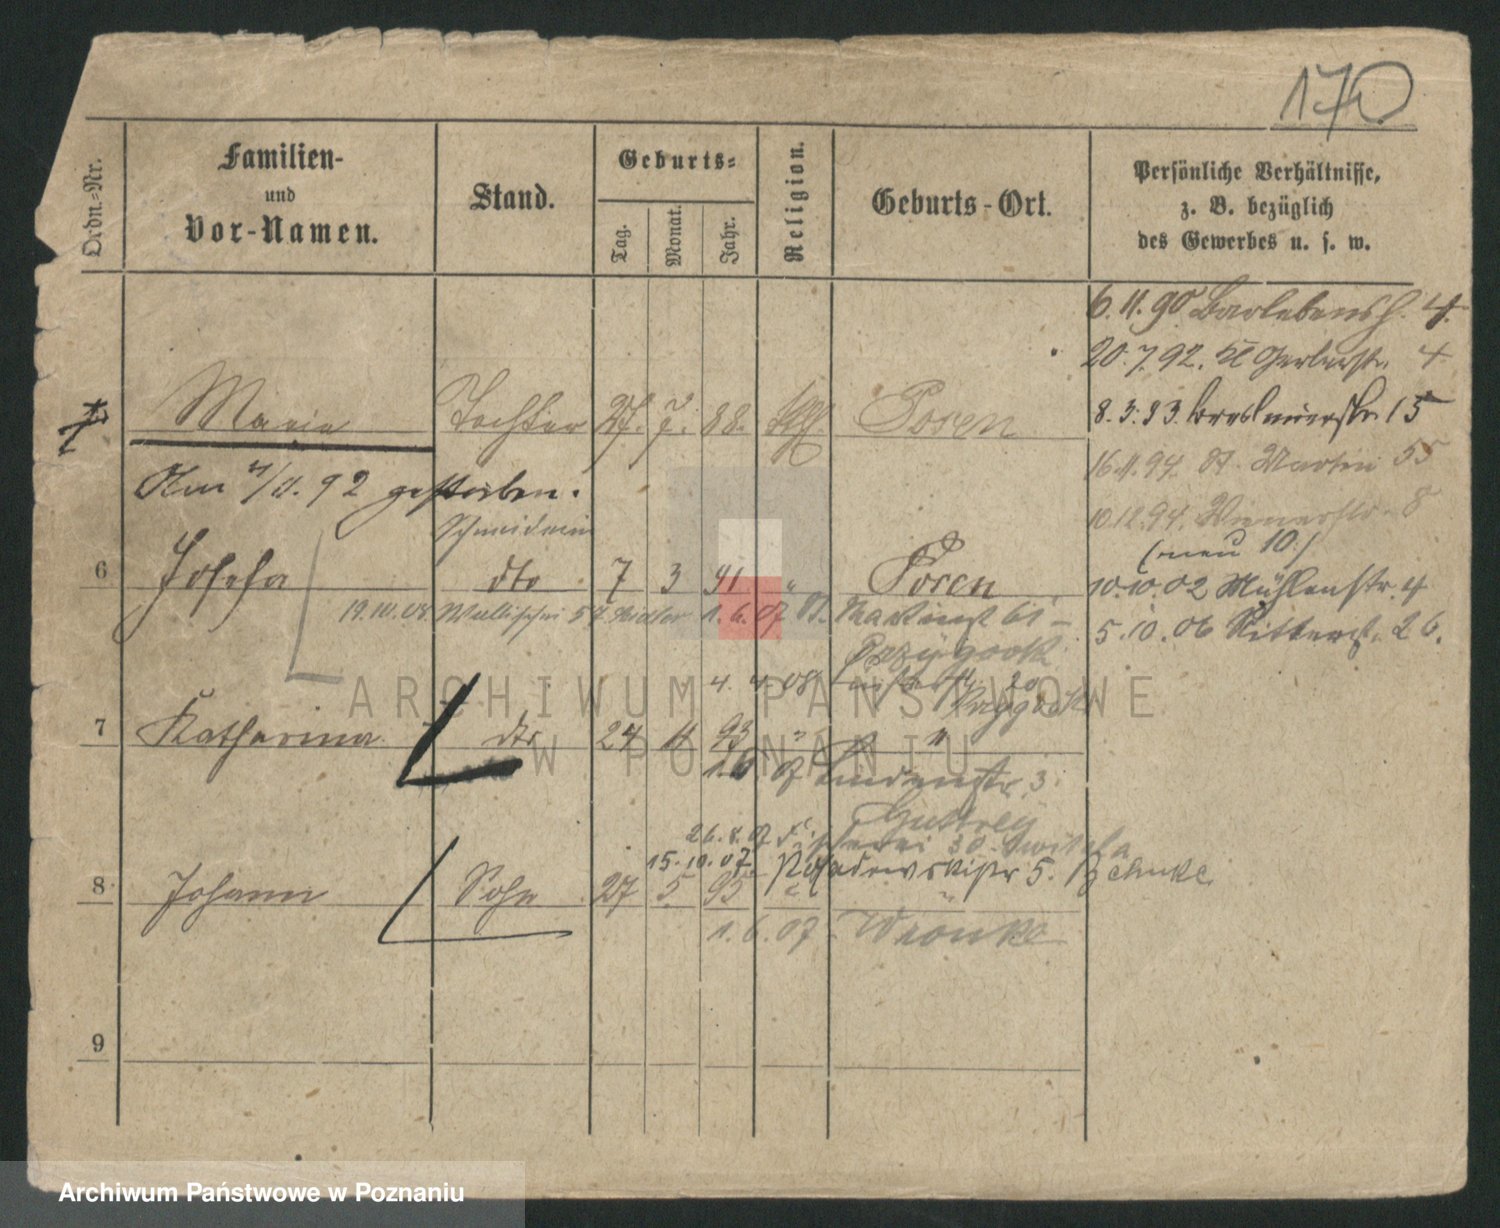 170
Ordn.-Nr.
Familien-
und
Vor-Namen.
Stand.
Geburts-
Tag.
Monat.
Jahr.
Religion.
Geburts-Ort.
Persönliche Verhältnisse,
z. B. bezüglich
des Gewerbes u. s. w.
6.11.90 Barlebensh. 4.
20.7.92. Kl Gerberstr. 4
Marie Tochter 27. 7. 88. Kth Posen
8.3.93. Breslauerstr. 15
16.11.94. St. Martin 55
Am 4/11.92 gestorben.
10.12.94 Wienerstr. 8
(neu 10.)
Schneiderin
6 Josefa dto 7 3 91 " Posen
10.10.02 Mühlenstr. 4
19.10.08. Wallischei 1.6.07 St. Martinst 61
5.10.06 Ritterst. 26.
4. 4. 08
7 Katharina dto 24 11 93 " "
1.6.07 Lindenstr. 3
26.8.07 Fischerei 30.
15.10.07. Posadowskistr 5. Behnke
8 Johann Sohn 27 5 95 " "
1.6.07. Wronke
9
ARCHIWUM PAŃSTWOWE
W POZNANIU
Archiwum Państwowe w Poznaniu